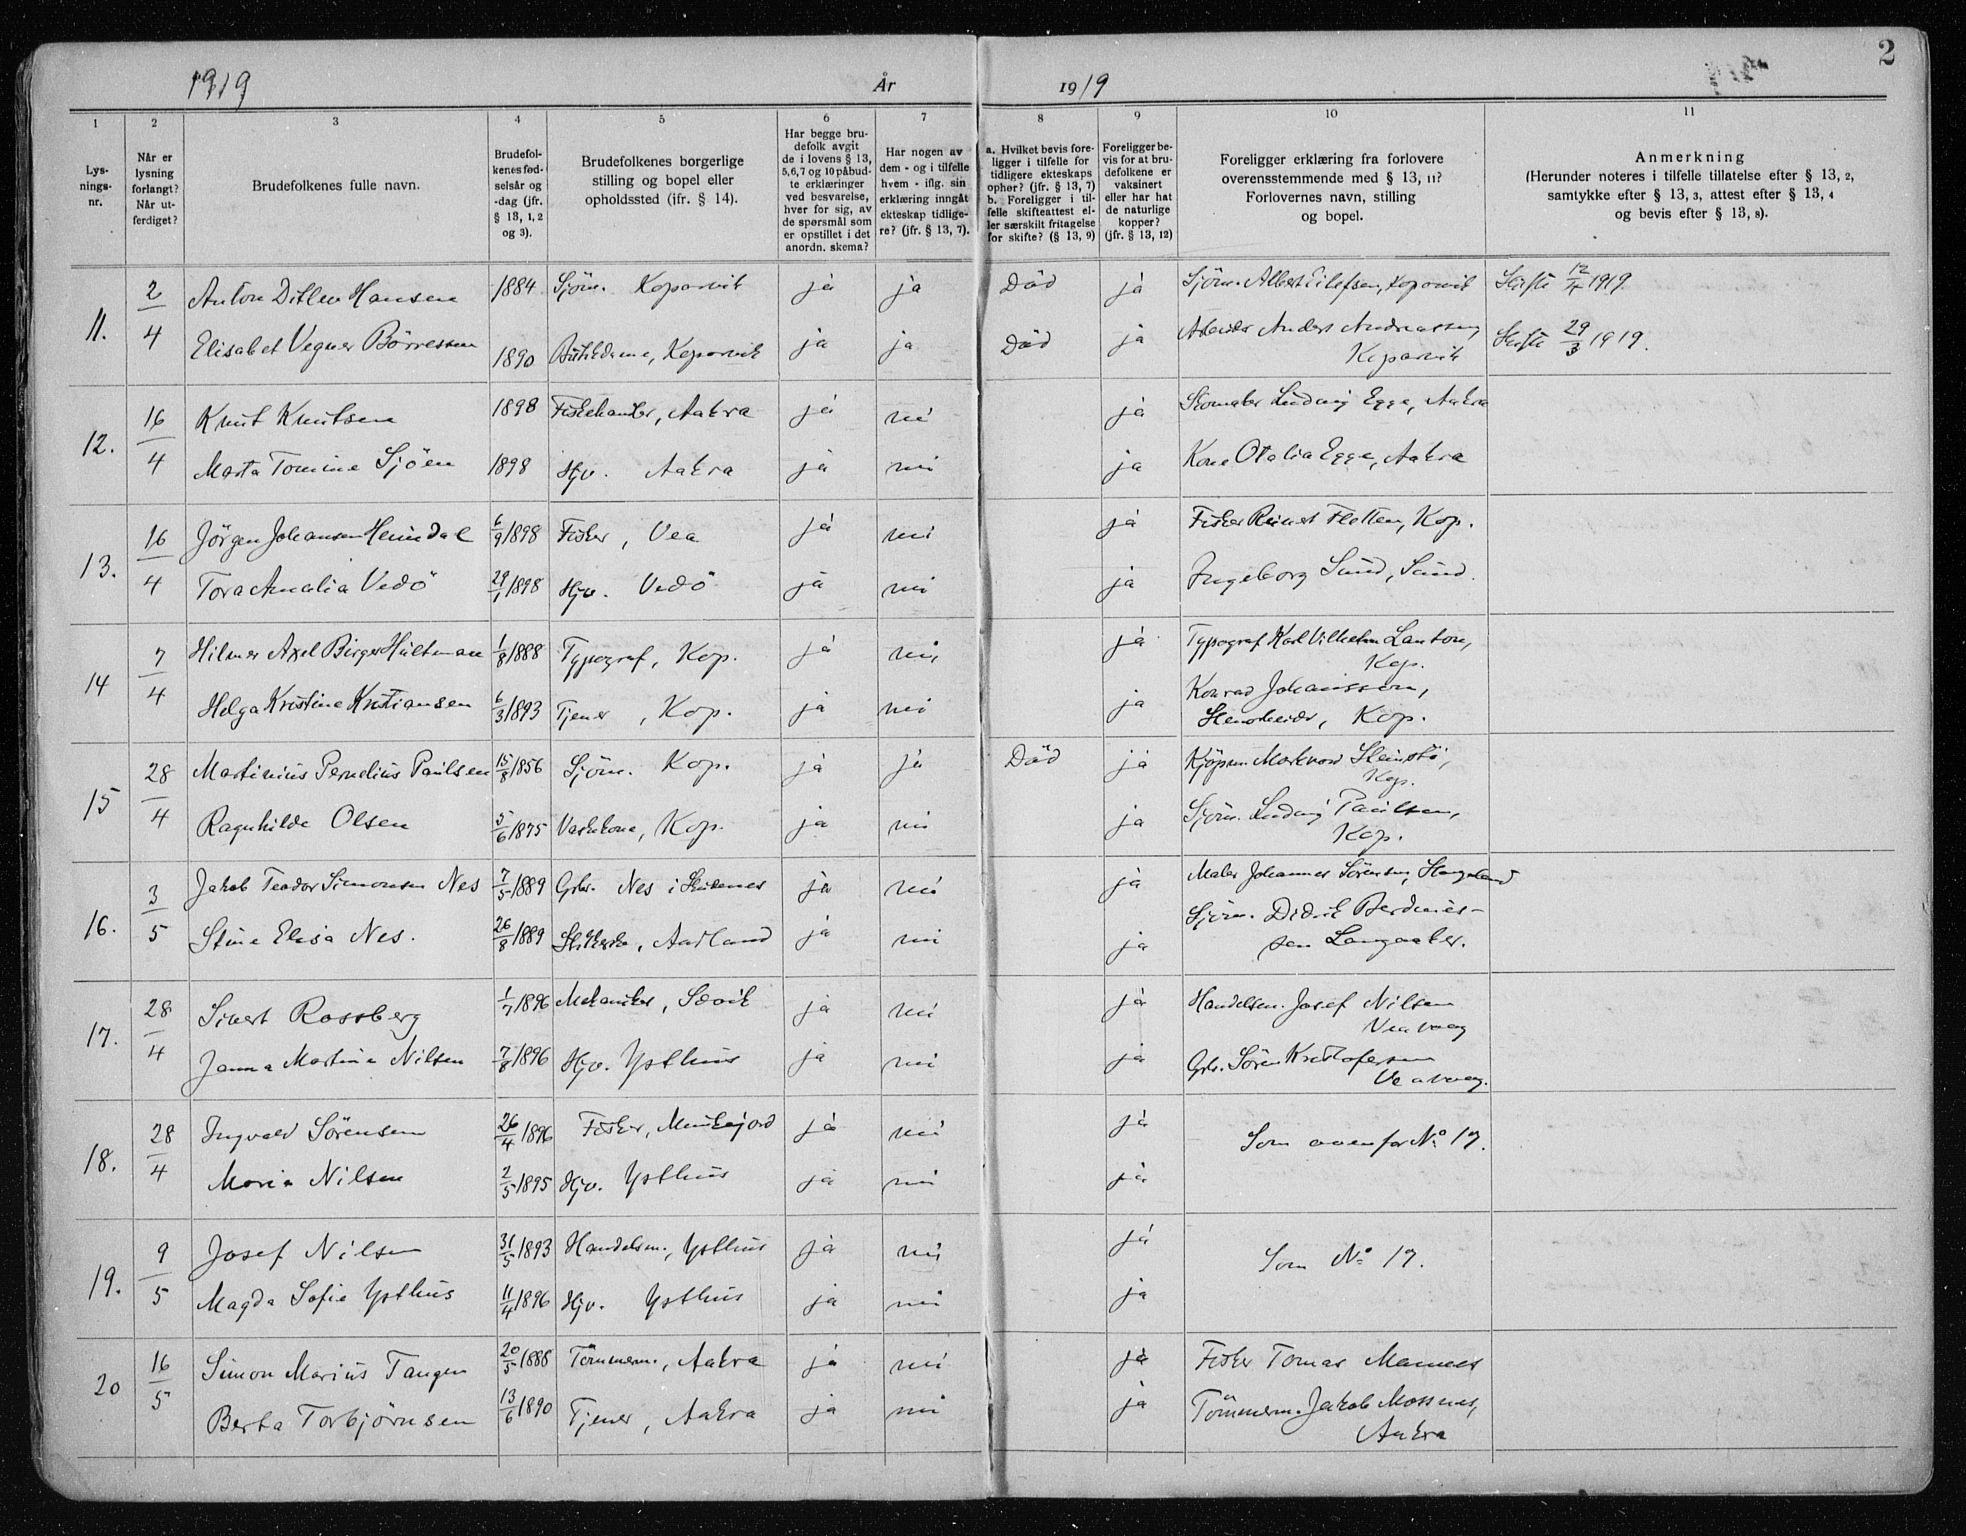 1919 År 1919 2
1 2 3 4 5 6 7 8 9 10 11
Lysningsnr.
Når er lysning forlangt? Når utferdiget?
Brudefolkenes fulle navn.
Brudefolkenes fødselsår og -dag (jfr. § 13, 1, 2 og 3).
Brudefolkenes borgerlige stilling og bopel eller opholdssted (jfr. § 14).
Har begge brudefolk avgit de i lovens § 13, 5, 6, 7 og 10 påbudte erklæringer ved besvarelse, hver for sig, av de spørsmål som er opstillet i det anordn. skema?
Har nogen av dem - og i tilfelle hvem - iflg. sin erklæring inngåt ekteskap tidligere? (jfr. § 13, 7).
a. Hvilket bevis foreligger i tilfelle for tidligere ekteskaps ophør? (jfr. § 13, 7)
b. Foreligger i tilfelle skifteattest eller særskilt fritagelse for skifte? (§ 13, 9)
Foreligger bevis for at brudefolkene er vaksinert eller har hat de naturlige kopper? (jfr. § 13, 12)
Foreligger erklæring fra forlovere overensstemmende med § 13, 11? Forlovernes navn, stilling og bopel.
Anmerkning
(Herunder noteres i tilfelle tillatelse efter § 13, 2, samtykke efter § 13, 3, attest efter § 13, 4 og bevis efter § 13, 8).
11. 2/4 Anton Ditlev Hansen 1884 Sjöm. Kopervik ja ja Död ja Sjöm. Albert Eilefsen, Kopervik Skifte 1919
Elisabet Vegner Börresen 1890 Kopervik ja ja Död ja Anders Andreassen, Kopervik Skifte 29/3 1919.
12. 16/4 Knut Knutsen 1898 Fiskehandler, Aakra ja nei ja Skomaker Ludvig Egge, Aakra
Marta Tomine Sjöen 1898 Hjv. Aakra ja nei ja Kone Otalia Egge, Aakra
13. 16/4 Jörgen Johansen Heimdal 6/9 1898 Fisker, Vea ja nei ja Fisker Reinert Flotten, Kop.
Tora Amalia Vedö 29/1 1898 Hjv. Vedö ja nei ja Ingeborg Sund, Sund.
14 7/4 Hilmer Axel Birger Hultman 1/8 1888 Typograf, Kop. ja nei ja Typograf Karl Vilhelm Lanton, Kop.
Helga Kristine Kristiansen 6/3 1893 Tjener, Kop. ja nei ja Konrad Johansson, Kop.
15 28/4 Martinius Pernelius Paulsen 15/8 1856 Sjöm. Kop. ja ja Död ja Kjöpm. Markvard Steinstö, Kop.
Ragnhilde Olsen 5/6 1875 Vaskekone, Kop. ja nei ja Sjöm. Ludvig Paulsen, Kop.
16. 3/5 Jakob Teodor Simonsen Nes 7/5 1889 Grbr. Nes i Skudenes ja nei ja Maler Johannes Sörensen,
Stine Elisa Nes. 26/8 1889 Aadland ja nei ja Sjöm. Didrik Berdinessen Langaaker.
17. 28/4 Sivert Rossberg 1/7 1896 Mekaniker, Sævik ja nei ja Handelsm. Josef Nilsen Veavaag
Janna Martina Nilsen 7/8 1896 Hjv. Ysthus ja nei ja Grbr. Sören Kristofersen Veavaag.
18. 28/4 Ingvald Sörensen 26/4 1896 Fisker, Munkejord ja nei ja Som ovenfor No 17.
Maria Nilsen 2/5 1895 Hjv. Ysthus ja nei ja
19. 9/5 Josef Nilsen 31/5 1893 Handelsm., Ysthus ja nei ja Som No 17.
Magda Sofie Ysthus 11/4 1896 Hjv. Ysthus ja nei ja
20 16/5 Simon Marius Tangen 20/5 1888 Tömmerm., Aakra ja nei ja Fisker Tomas Mannes
Berta Torbjörnsen 13/6 1890 Tjener, Aakra ja nei ja Tömmerm. Jakob Mosnes, Aakra